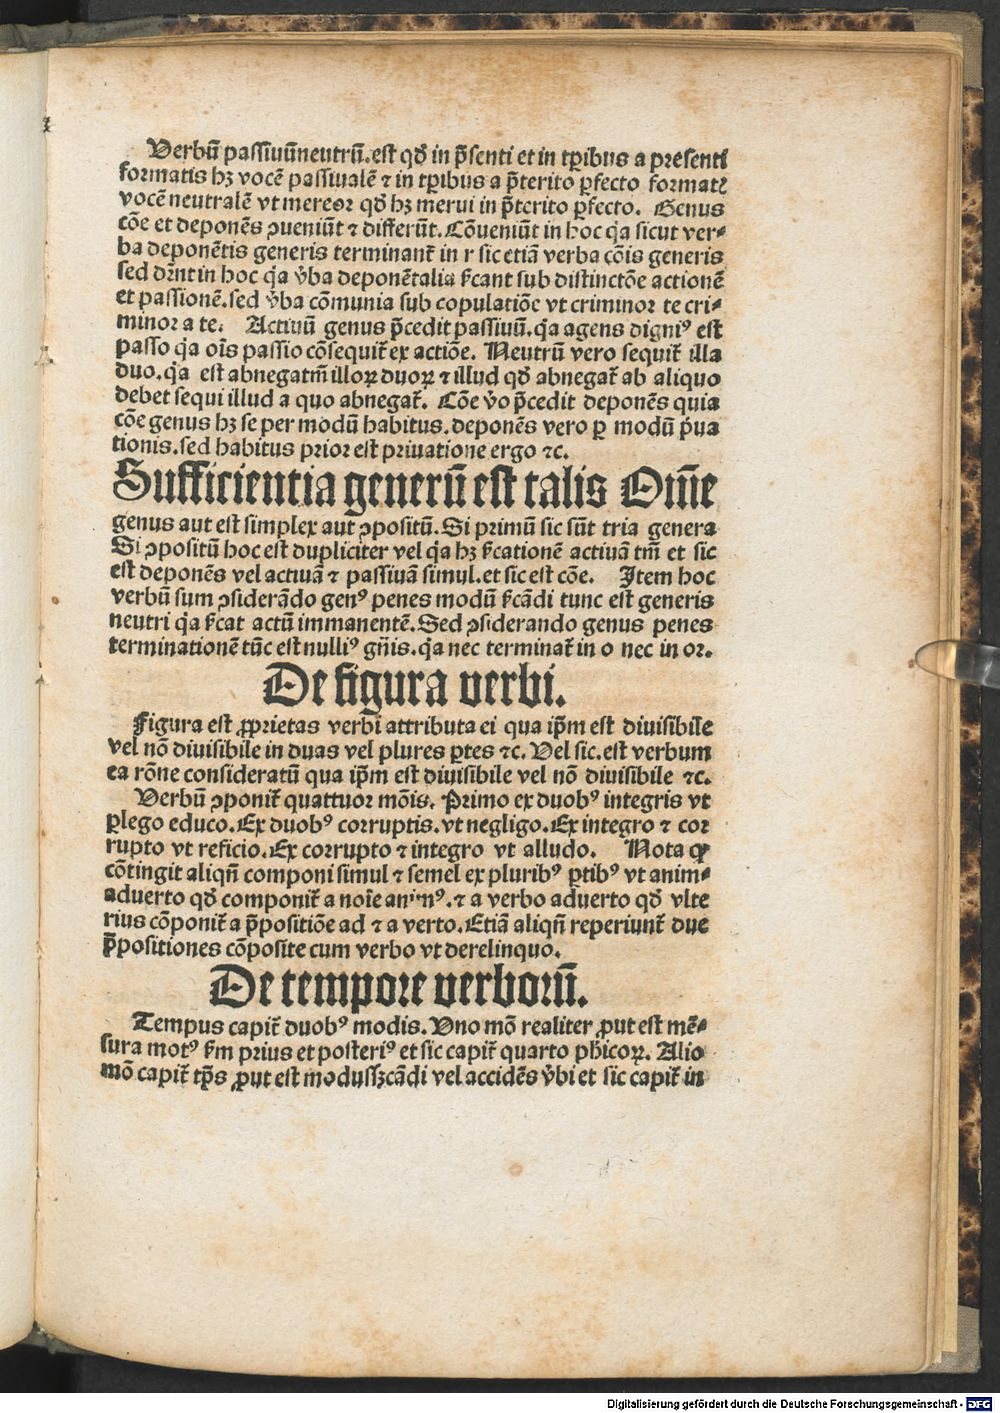 Verbū passiuūneutrū.est qđ in p̄senti et in tꝑibus a presenti
formatis hꝫ vocē passiualē ⁊ in tꝑibus a p̄terito ꝑfecto formatꝭ
vocē neutralē vt mereor qđ hꝫ merui in p̄terito ꝑfecto. Genus
cōe et deponēs ꝯueniūt ⁊ differūt. Cōueniūt in hoc qꝛ sicut ver⸗
ba deponētis generis terminant᷑ in r sic etiā verba cōis generis
sed dr̄nt in hoc qꝛ v̄ba deponētalia s̄cant sub distinctōe actionē
et passionē.sed v̄ba cōmunia sub copulatiōe vt criminor te cri⸗
minor a te. Actiuū genus p̄cedit passiuū.qꝛ agens digniꝰ est
passo qꝛ oīs passio cōsequit᷑ ex actiōe. Neutrū vero sequit᷑ illa
duo.qꝛ est abnegatm̄ illoꝝ duoꝝ ⁊ illud qđ abnegat᷑ ab aliquo
debet sequi illud a quo abnegat᷑. Cōe v̄o p̄cedit deponēs quia
cōe genus hꝫ se per modū habitus.deponēs vero ꝑ modū p̄ua
tionis.sed habitus prior est priuatione ergo ⁊c.
Sufficientia generū est talis Om̄e
genus aut est simplex aut ꝯpositū. Si primū sic sūt tria genera
Si ꝯpositū hoc est dupliciter vel qꝛ hꝫ s̄cationē actiuā tm̄ et sic
est deponēs vel actiuā ⁊ passiuā simul.et sic est cōe. Item hoc
verbū sum ꝯsiderādo genꝰ penes modū s̄cādi tunc est generis
neutri qꝛ s̄cat actū immanentē. Sed ꝯsiderando genus penes
terminationē tūc est nulliꝰ gn̄is.qꝛ nec terminat᷑ in o nec in or.
De figura verbi.
Figura est ꝓprietas verbi attributa ei qua ip̄m est diuisibile
vel nō diuisibile in duas vel plures ꝑtes ⁊c. Vel sic.est verbum
ea rōne consideratū qua ip̄m est diuisibile vel nō diuisibile ⁊c.
Verbū ꝯponit᷑ quattuor mōis. Primo ex duobꝰ integris vt
ꝑlego educo. Ex duobꝰ corruptis.vt negligo. Ex integro ⁊ cor
rupto vt reficio. Ex corrupto ⁊ integro vt alludo. Nota ꝙ
cōtingit aliqn̄ componi simul ⁊ semel ex pluribꝰ ꝑtibꝰ vt anim⸗
aduerto qđ componit᷑ a noīe animꝰ.⁊ a verbo aduerto qđ vlte
rius cōponit᷑ a p̄positiōe ad ⁊ a verto. Etiā aliqn̄ reperiunt᷑ due
p̄positiones cōposite cum verbo vt derelinquo.
De tempore verborū.
Tempus capit᷑ duobꝰ modis. Uno mō realiter ꝓut est mē⸗
sura motꝰ s̄m prius et posteriꝰ et sic capit᷑ quarto ph̄icoꝝ. Alio
mō capit᷑ tp̄s ꝓut est modus s̄cādi vel accidēs v̄bi et sic capit᷑ in
Digitalisierung gefördert durch die Deutsche Forschungsgemeinschaft - DFG